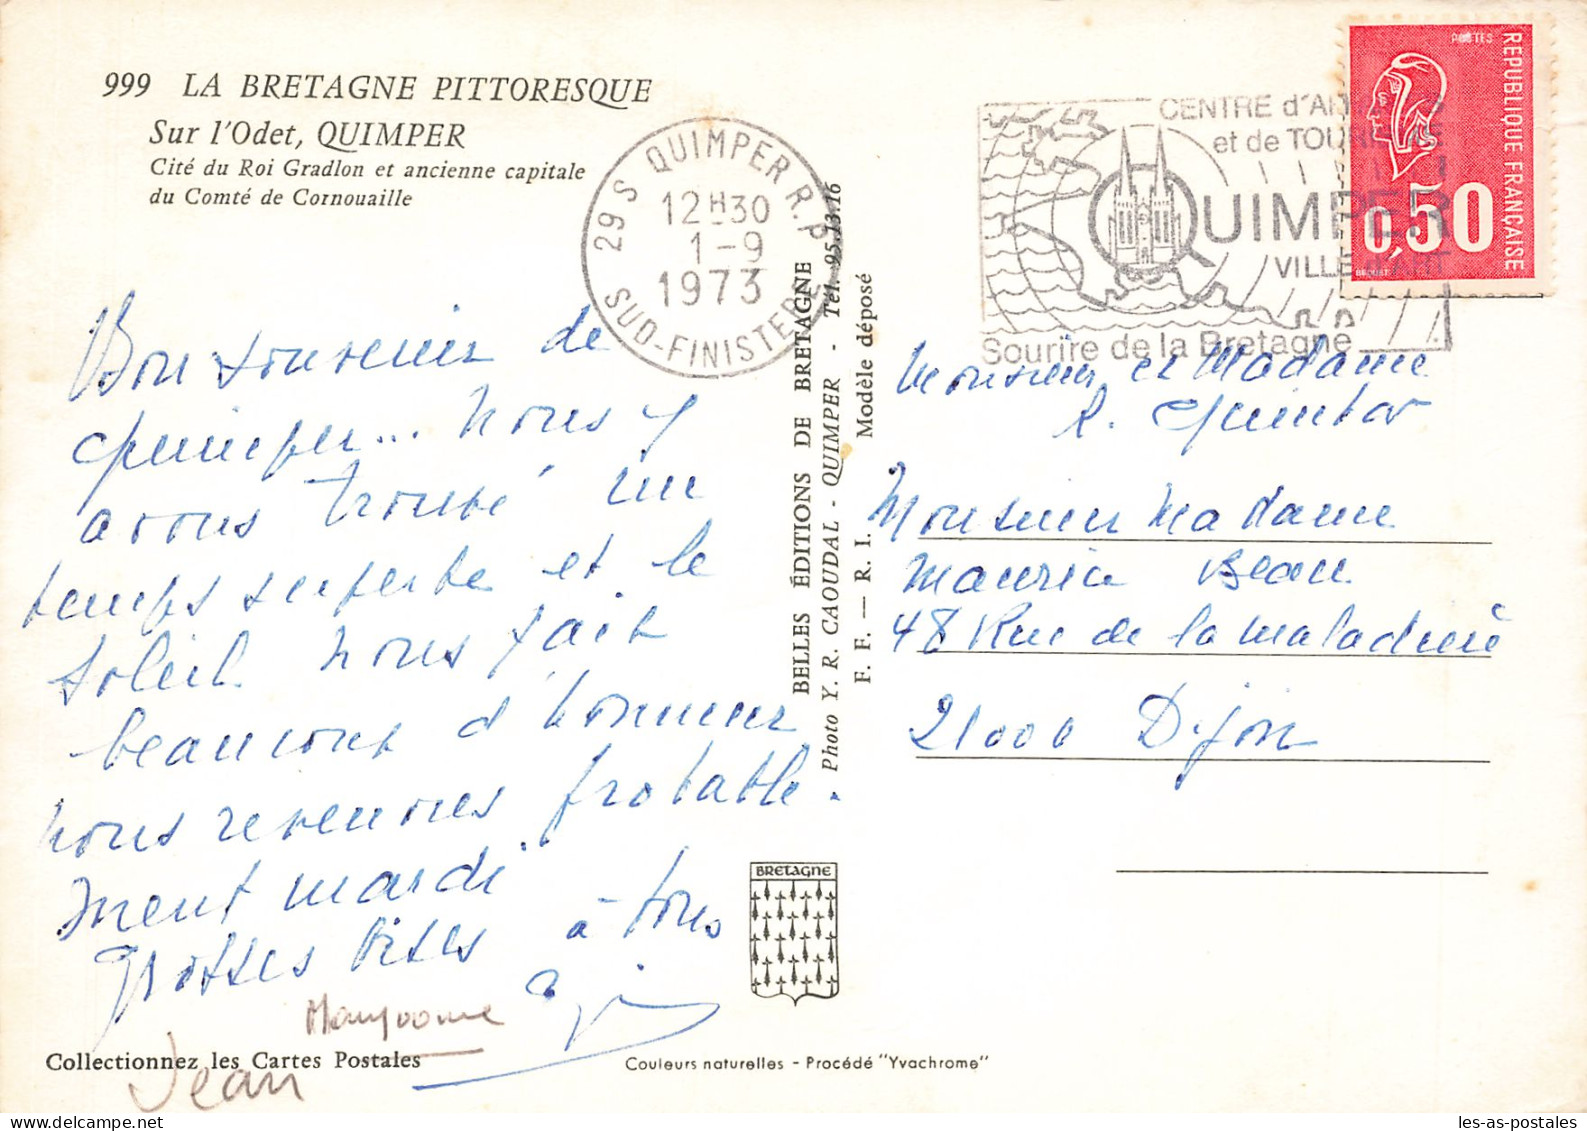 999 LA BRETAGNE PITTORESQUE
Sur l'Odet, QUIMPER
Cité du Roi Gradlon et ancienne capitale
du Comté de Cornouaille
29 S QUIMPER R.P
12H30
1-9
1973
SUD-FINISTERE
CENTRE d'ART
et de TOURISME
QUIMPER
VILLE D'ART
Sourire de la Bretagne
POSTES
REPUBLIQUE FRANÇAISE
0,50
Bon souvenir de
Quimper... nous y
avons trouvé un
temps superbe et le
soleil nous fait
beaucoup d'honneur
nous revenons probable-
ment mardi
grosses bises à tous
Jean
BELLES ÉDITIONS DE BRETAGNE
Photo Y. R. CAOUDAL - QUIMPER - Tél. 95.13-16
F. F. — R. I. Modèle déposé
Monsieur et Madame
R. Quintar
Monsieur Madame
Maurice Beau
48 Rue de la Maladière
21000 Dijon
BRETAGNE
Collectionnez les Cartes Postales
Couleurs naturelles - Procédé "Yvachrome"
les-as-postales